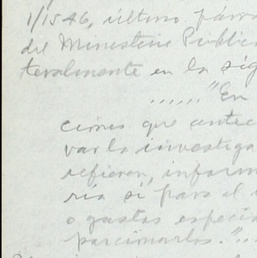 1/1546, último párra
del Ministerio Públic
teralmente en la sig
......"En
ciones que antec
var la investiga
refieren, inform
ría si para el
o gastos especia
parcimarlos."..